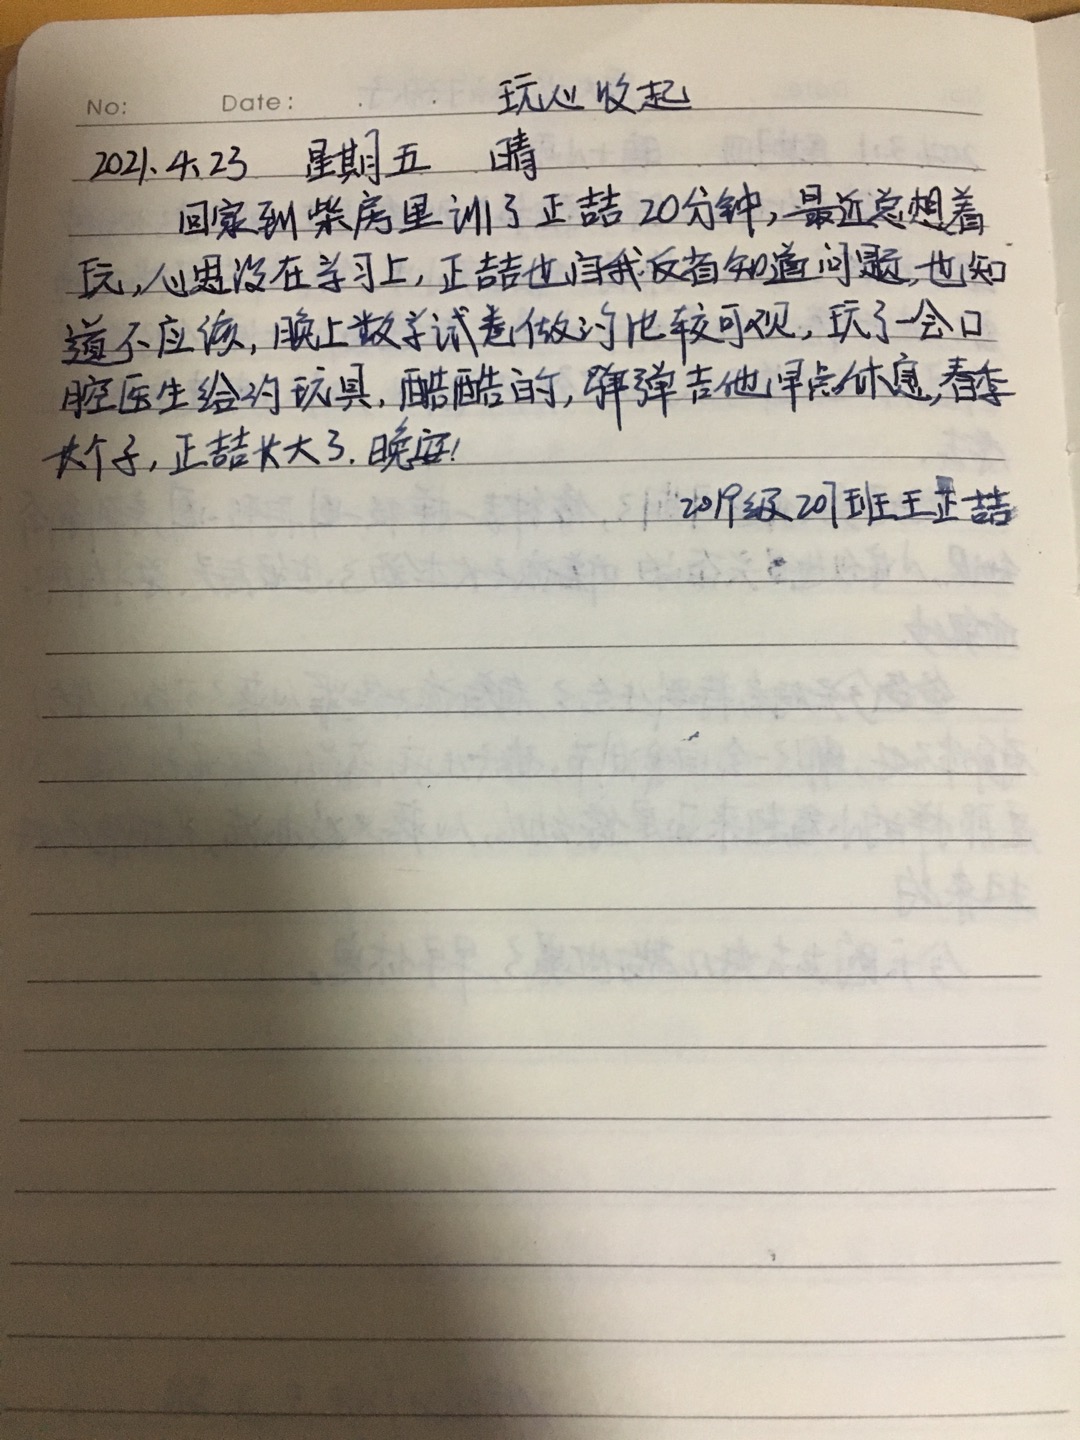 玩心收起
No: Date:
2021.4.23 星期五 晴
回家到柴房里训了正喆20分钟,最近总想着
玩,心思没在学习上,正喆也自我反省知道问题,也知
道不应该,晚上数学试卷做的比较可观,玩了一会口
腔医生给的玩具,酷酷的,弹弹吉他早点休息,春季
长个子,正喆长大了.晚安!
2019级207班王正喆